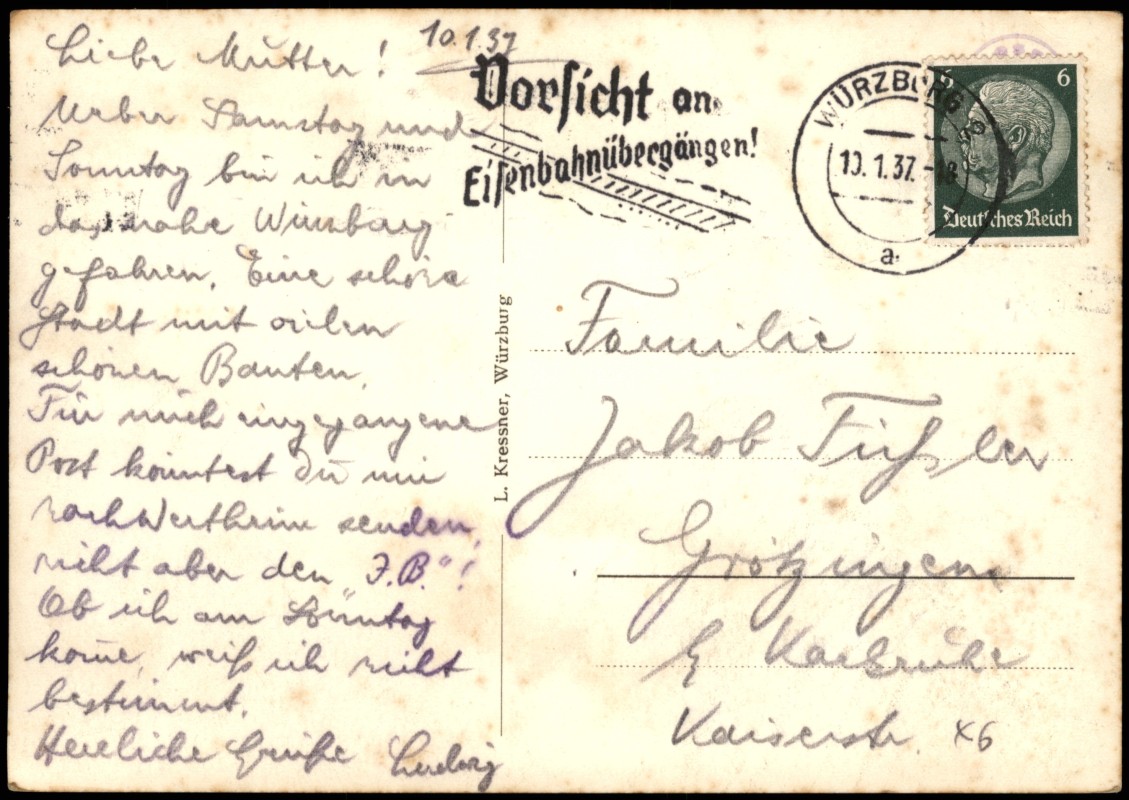 10.1.37
Liebe Mutter!
Ueber Samstag und
Sonntag bin ich in
das nahe Würzburg
gefahren. Eine schöne
Stadt mit vielen
schönen Bauten.
Für mich eingegangene
Post könntest Du mir
nach Wertheim senden,
nicht aber den „J.B."!
Ob ich am Sonntag
kom̄e, weiß ich nicht
bestimmt.
Herzliche Grüße Ludwig
Vorsicht an
Eisenbahnübergängen!
WÜRZBURG
10.1.37.-18
a
6 6
Deutsches Reich
L. Kressner, Würzburg
Familie
Jakob Füßler
Grötzingen
b/ Karlsruhe
Kaiserstr. 46